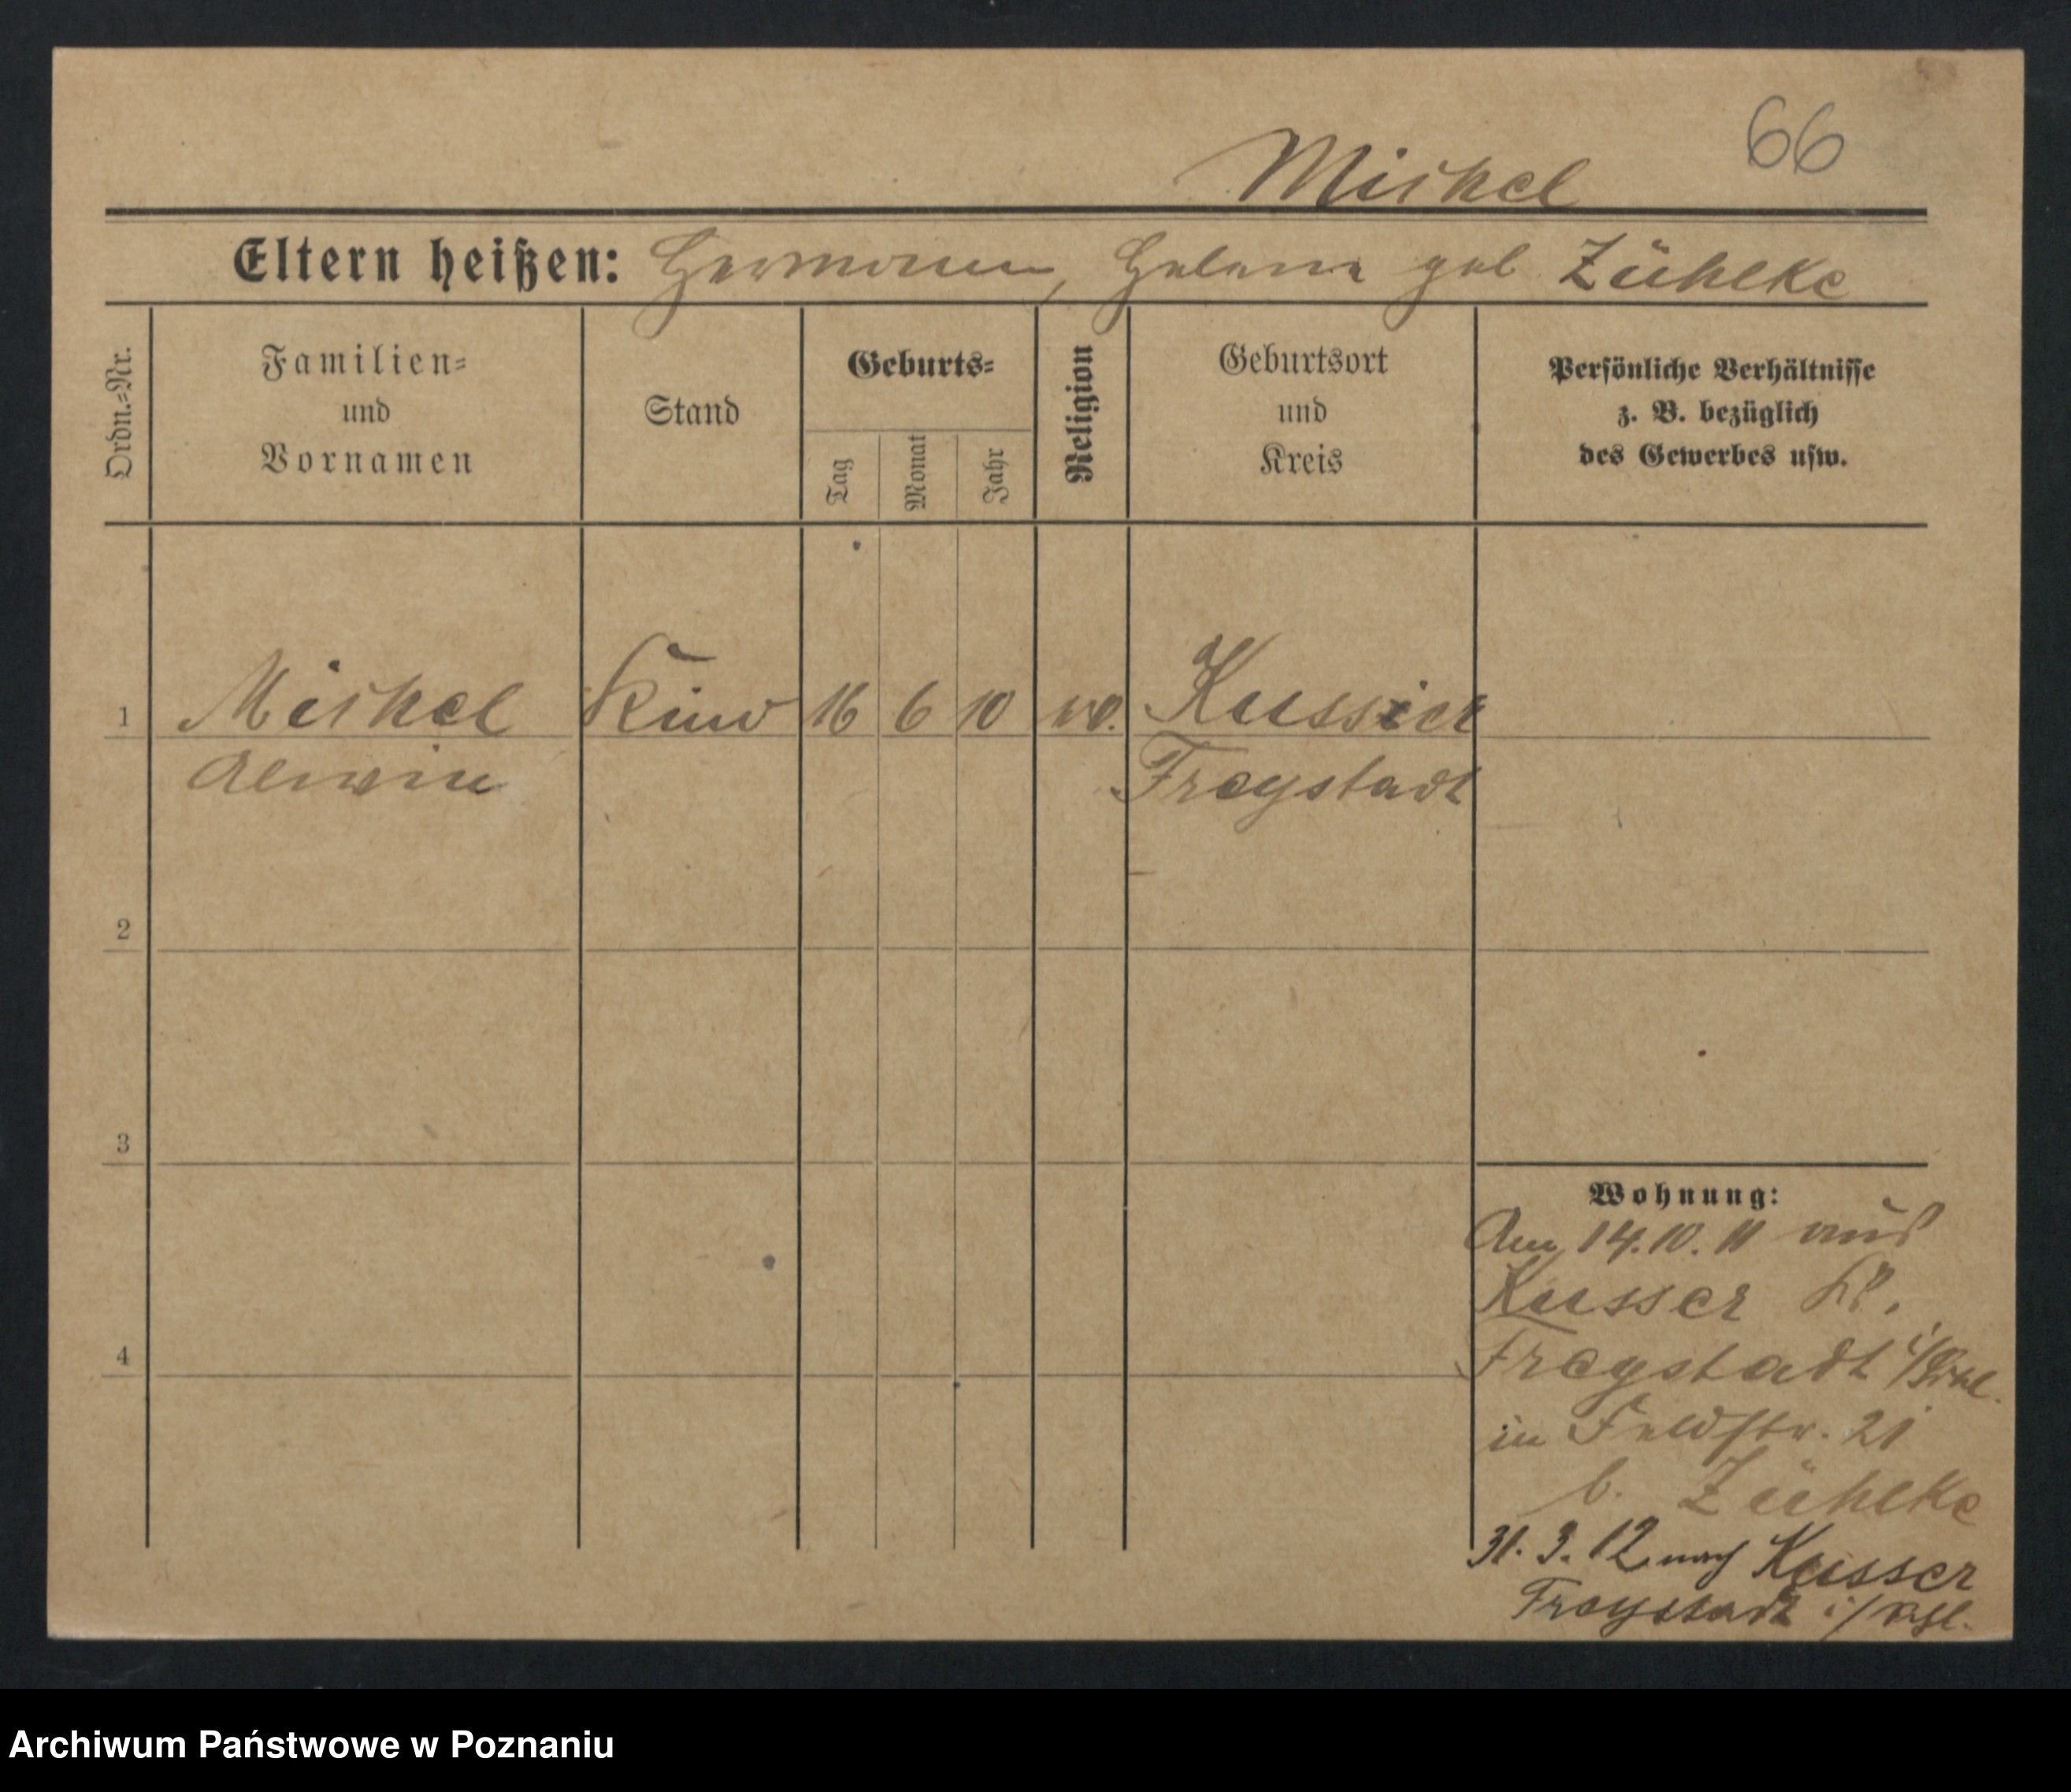 66
Mickel
Eltern heißen: Hermann, Helene geb Zühlke
Ordn.-Nr.
Familien-
und
Vornamen
Stand
Geburts-
Tag
Monat
Jahr
Religion
Geburtsort
und
Kreis
Persönliche Verhältnisse
z. B. bezüglich
des Gewerbes usw.
1 Mickel Kind 16 6 10 Kusser
Alwin Freystadt
2
3
4
Wohnung:
Am 14.10.11 aus
Kusser Kr.
Freystadt
in Feldstr. 21
b. Zühlke
31.3.12 nach Kusser
Freystadt i/
Archiwum Państwowe w Poznaniu